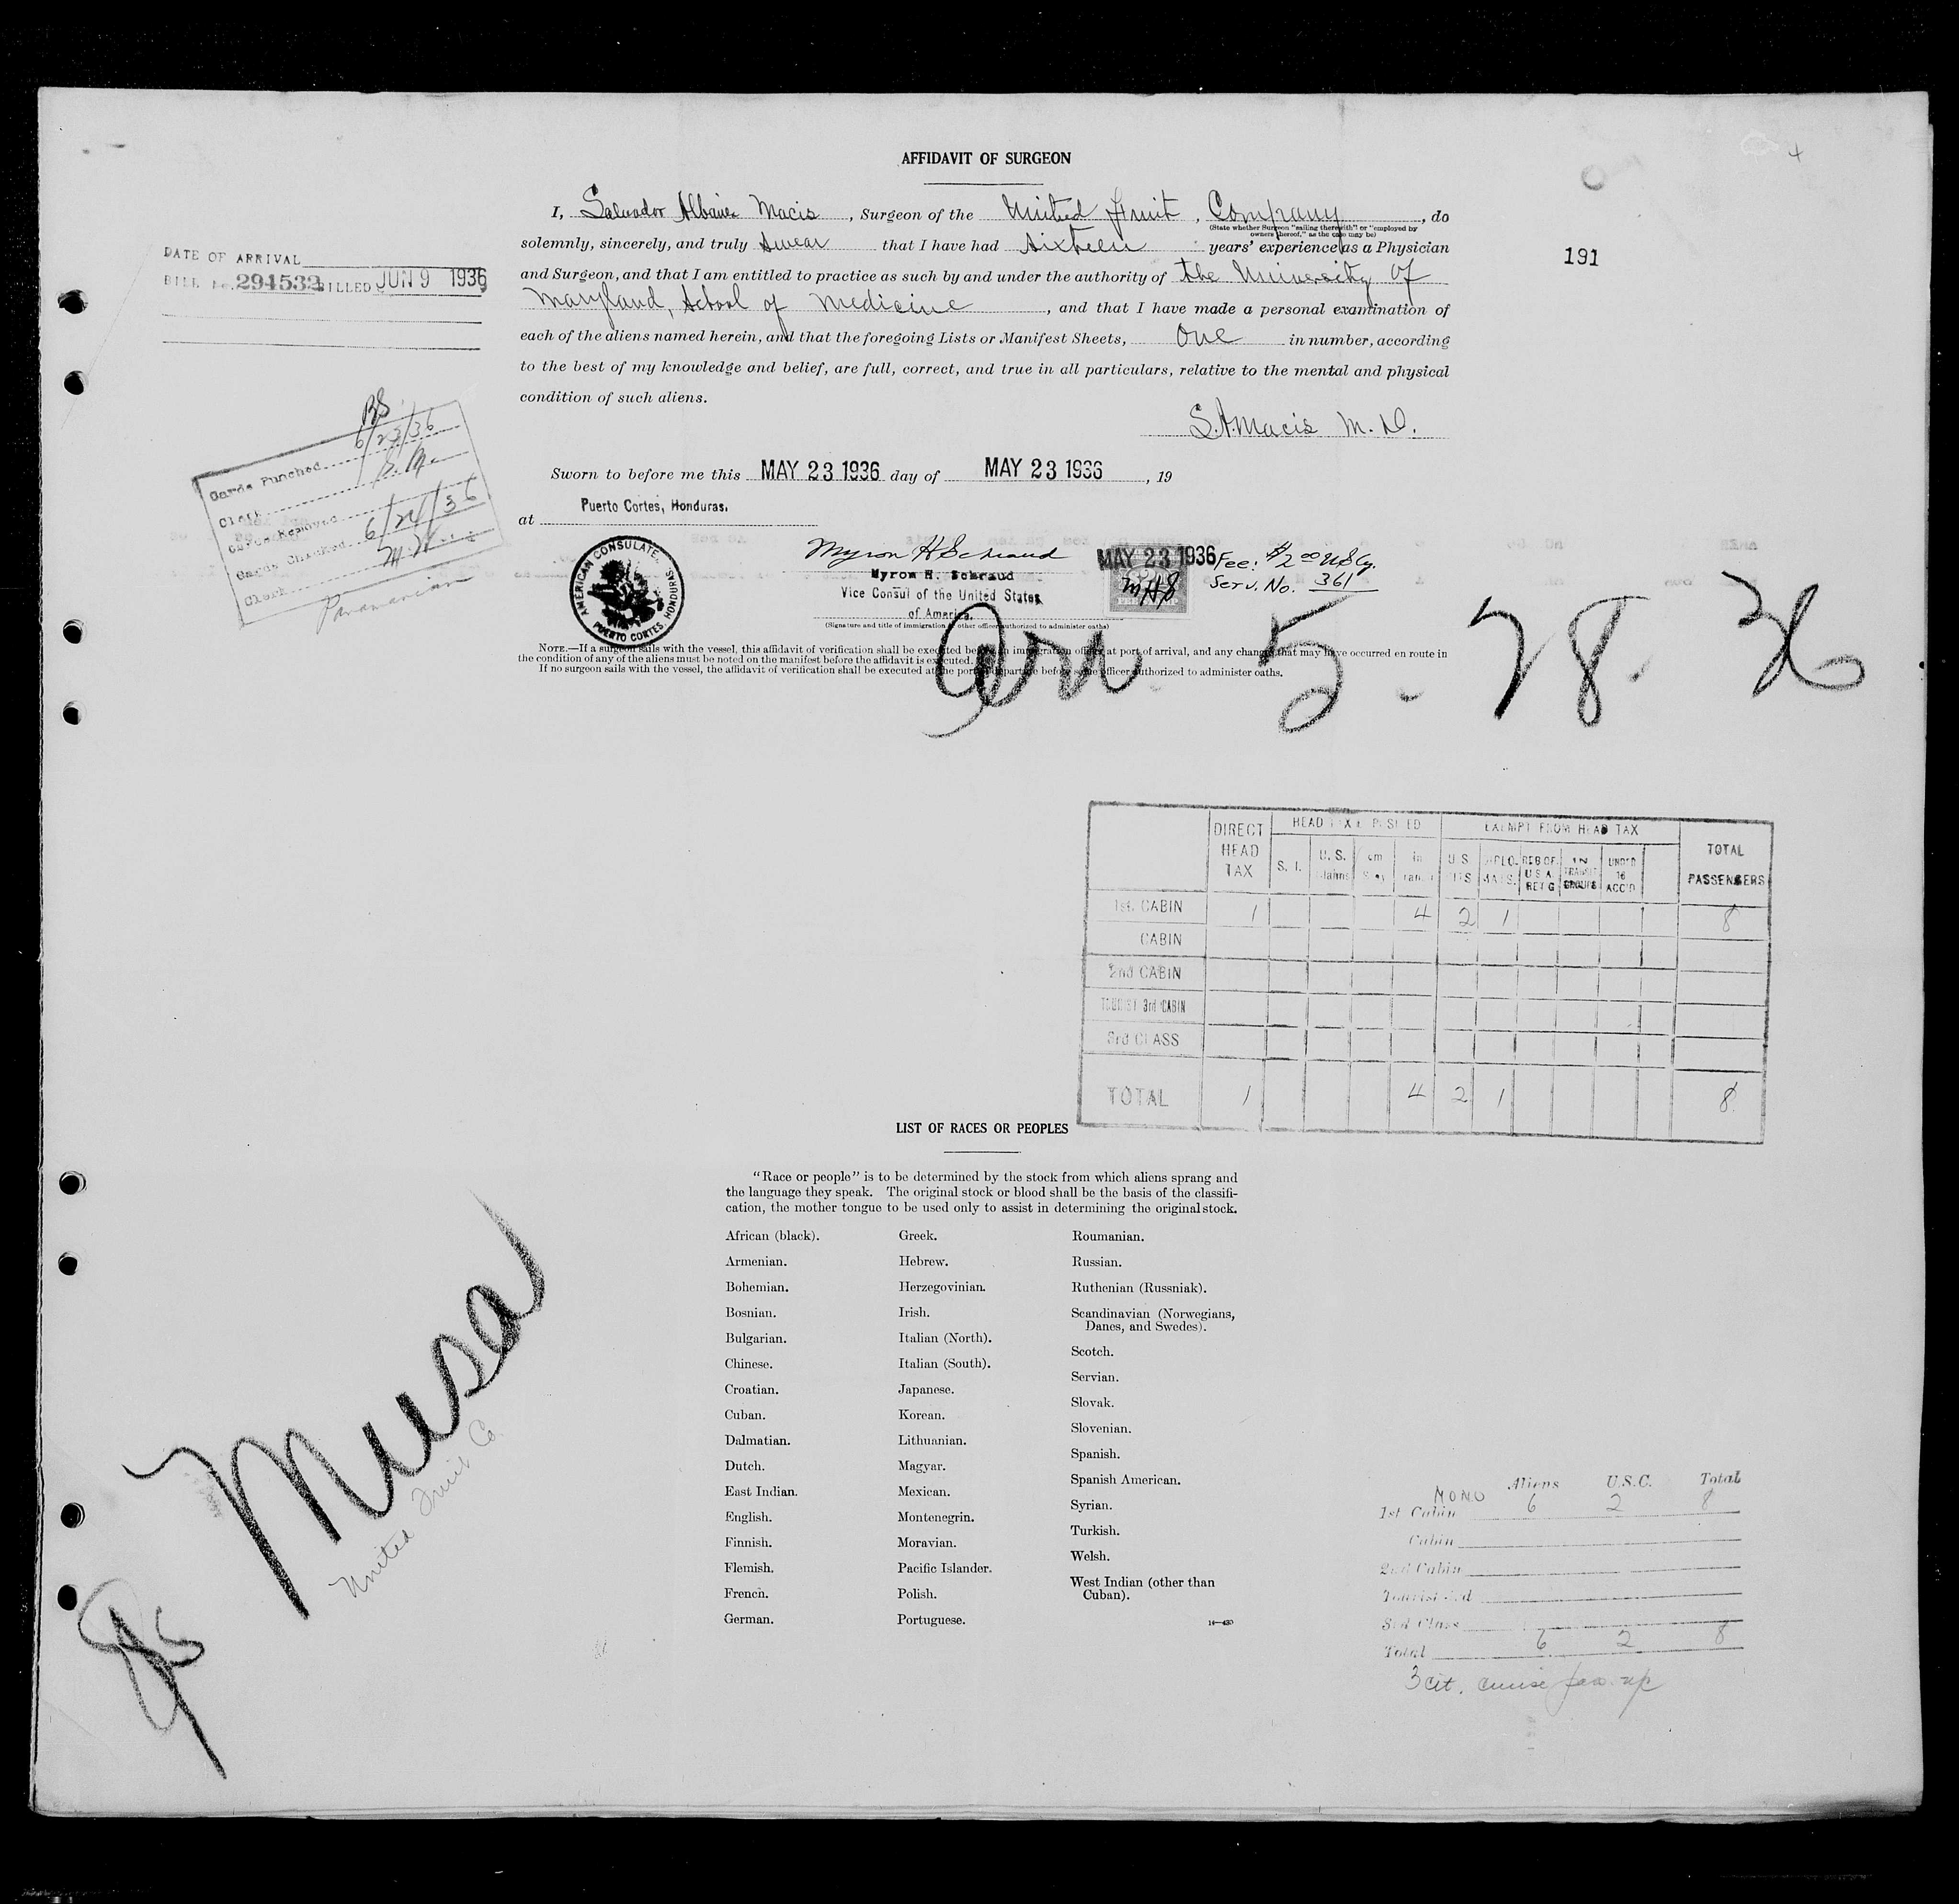 AFFIDAVIT OF SURGEON
191
I, Salvador Albanez Macis, Surgeon of the United Fruit Company, do
(State whether Surgeon "sailing therewith" or "employed by
owners thereof," as the case may be)
solemnly, sincerely, and truly swear that I have had sixteen years' experience as a Physician
and Surgeon, and that I am entitled to practice as such by and under the authority of the University of
Maryland, School of Medicine, and that I have made a personal examination of
each of the aliens named herein, and that the foregoing Lists or Manifest Sheets, One in number, according
to the best of my knowledge and belief, are full, correct, and true in all particulars, relative to the mental and physical
condition of such aliens.
S.A. Macis M.D.
Sworn to before me this MAY 23 1936 day of MAY 23 1936, 19
at Puerto Cortes, Honduras.
DATE OF ARRIVAL
BILL No. 294532 BILLED JUN 9 1936
BS
Cards Punched 6/23/36
Clerk
Cards Removed
Cards Checked 6/24/36
Clerk
Panamanian
AMERICAN CONSULATE
PUERTO CORTES, HONDURAS.
Myron H Schraud
Myron H. Schraud
Vice Consul of the United States
of America.
(Signature and title of immigration or other officer authorized to administer oaths)
MAY 23 1936
MHS
Fee: $2.00 US Cy.
Serv. No. 361
NOTE.—If a surgeon sails with the vessel, this affidavit of verification shall be executed before an immigration officer at port of arrival, and any changes that may have occurred en route in
the condition of any of the aliens must be noted on the manifest before the affidavit is executed.
If no surgeon sails with the vessel, the affidavit of verification shall be executed at the port of departure before some officer authorized to administer oaths.
Arr. 5. 28. 36
DIRECT HEAD TAX
HEAD TAX DEPOSITED
S. I.
U. S. Claims
EXEMPT FROM HEAD TAX
U.S. CITS
DIPLOMATS.
REB OF. U S A. RET'G
IN TRANSIT GROUPS
UNDER 16 ACC'D
TOTAL PASSENGERS
1st. CABIN 1 4 2 1 8
CABIN
2nd CABIN
TOURIST 3rd CABIN
3rd CLASS
TOTAL 1 4 2 1 8
LIST OF RACES OR PEOPLES
"Race or people" is to be determined by the stock from which aliens sprang and
the language they speak. The original stock or blood shall be the basis of the classifi-
cation, the mother tongue to be used only to assist in determining the original stock.
African (black).
Armenian.
Bohemian.
Bosnian.
Bulgarian.
Chinese.
Croatian.
Cuban.
Dalmatian.
Dutch.
East Indian.
English.
Finnish.
Flemish.
French.
German.
Greek.
Hebrew.
Herzegovinian.
Irish.
Italian (North).
Italian (South).
Japanese.
Korean.
Lithuanian.
Magyar.
Mexican.
Montenegrin.
Moravian.
Pacific Islander.
Polish.
Portuguese.
Roumanian.
Russian.
Ruthenian (Russniak).
Scandinavian (Norwegians,
Danes, and Swedes).
Scotch.
Servian.
Slovak.
Slovenian.
Spanish.
Spanish American.
Syrian.
Turkish.
Welsh.
West Indian (other than
Cuban).
14—430
Musa
United Fruit Co.
Aliens U.S.C. Total
1st Cabin 6 2 8
Cabin
2nd Cabin
Tourist 3rd
3rd Class
Total 6 2 8
3 cit. cruise